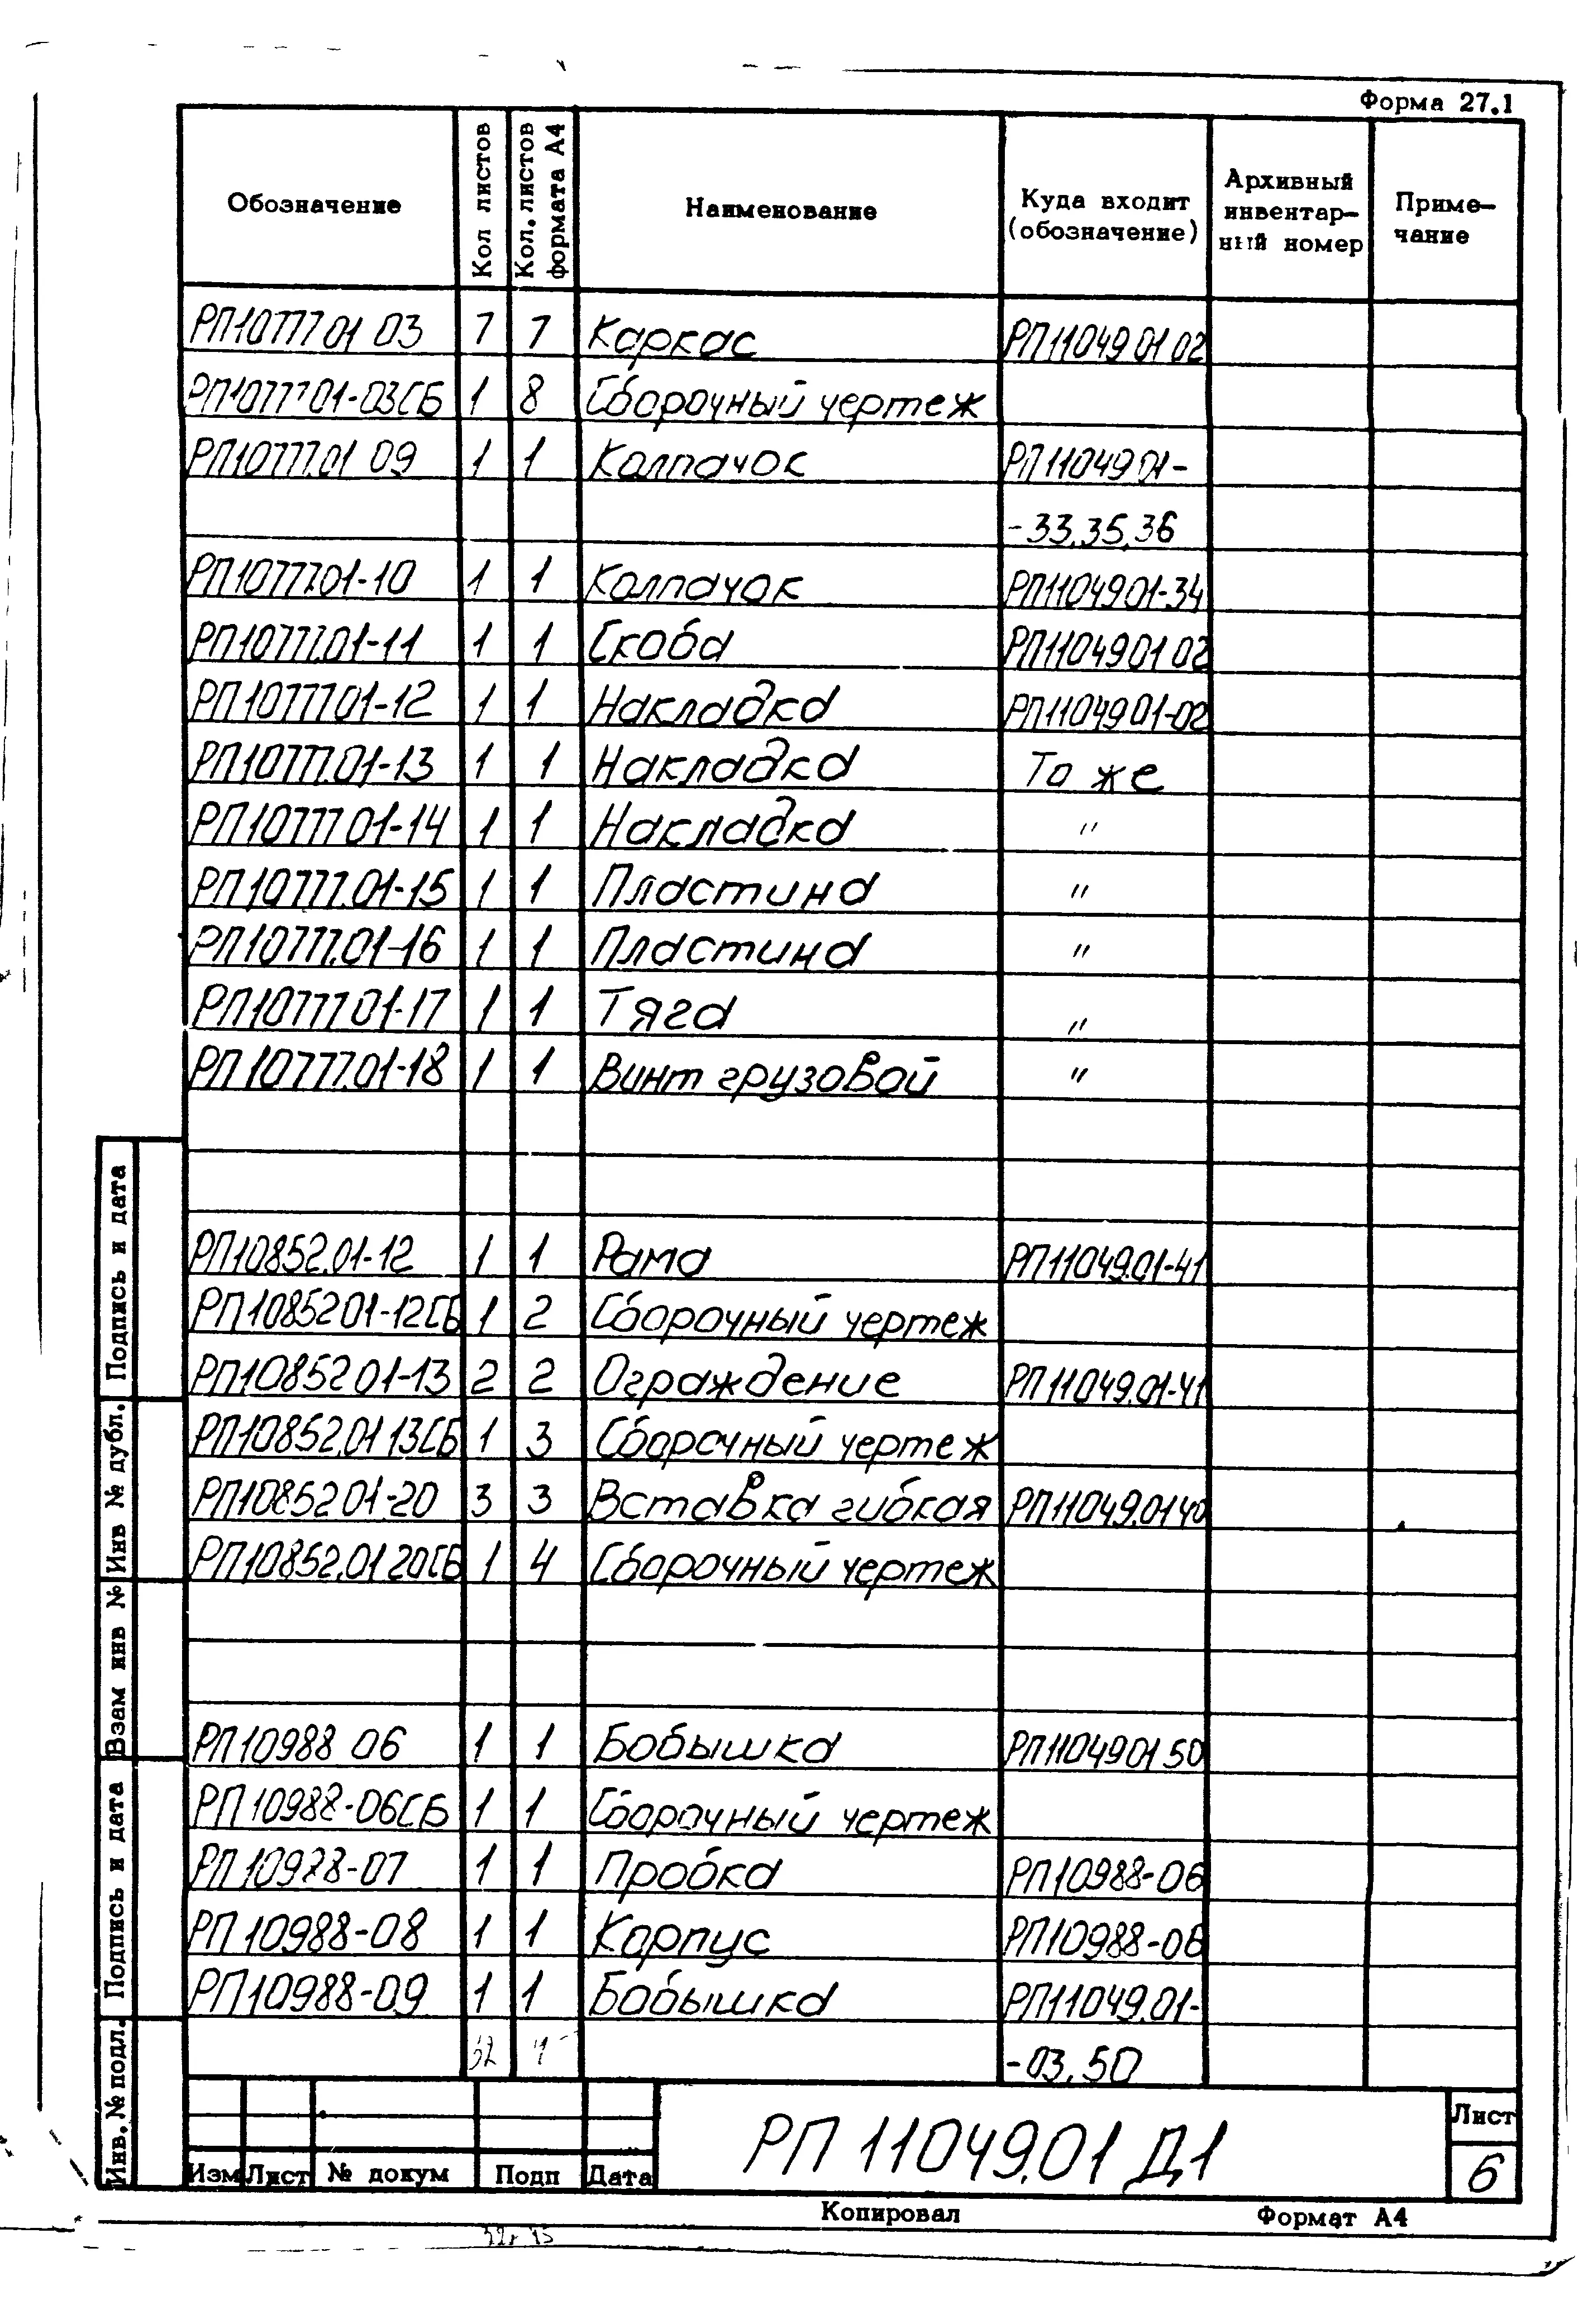 Форма 27.1
Обозначение Кол листов Кол. листов формата А4 Наименование Куда входит (обозначение) Архивный инвентарный номер Примечание
РП10777 01 03 7 7 Каркас РП11049 01 02
РП10777 01-03СБ 1 8 Сборочный чертеж
РП10777.01 09 1 1 Колпачок РП11049 01-
-33,35,36
РП10777.01-10 1 1 Колпачок РП11049 01-34
РП10777.01-11 1 1 Скоба РП11049 01 02
РП10777 01-12 1 1 Накладка РП11049 01-02
РП10777.01-13 1 1 Накладка То же
РП10777 01-14 1 1 Накладка "
РП10777.01-15 1 1 Пластина "
РП10777.01-16 1 1 Пластина "
РП10777 01-17 1 1 Тяга "
РП10777.01-18 1 1 Винт грузовой "
РП10852.01-12 1 1 Рама РП11049.01-41
РП10852 01-12СБ 1 2 Сборочный чертеж
РП10852 01-13 2 2 Ограждение РП11049.01-41
РП10852.01 13СБ 1 3 Сборочный чертеж
РП10852 01-20 3 3 Вставка гибкая РП11049.01 40
РП10852.01 20СБ 1 4 Сборочный чертеж
РП10988 06 1 1 Бобышка РП11049 01 50
РП10988-06СБ 1 1 Сборочный чертеж
РП10988-07 1 1 Пробка РП10988-06
РП10988-08 1 1 Корпус РП10988-06
РП10988-09 1 1 Бобышка РП11049.01-
-03,50
Подпись и дата
Инв № дубл.
Взам инв №
Подпись и дата
Инв. № подл.
Изм Лист № докум Подп Дата
РП 11049.01 Д1
Лист
6
Копировал Формат А4